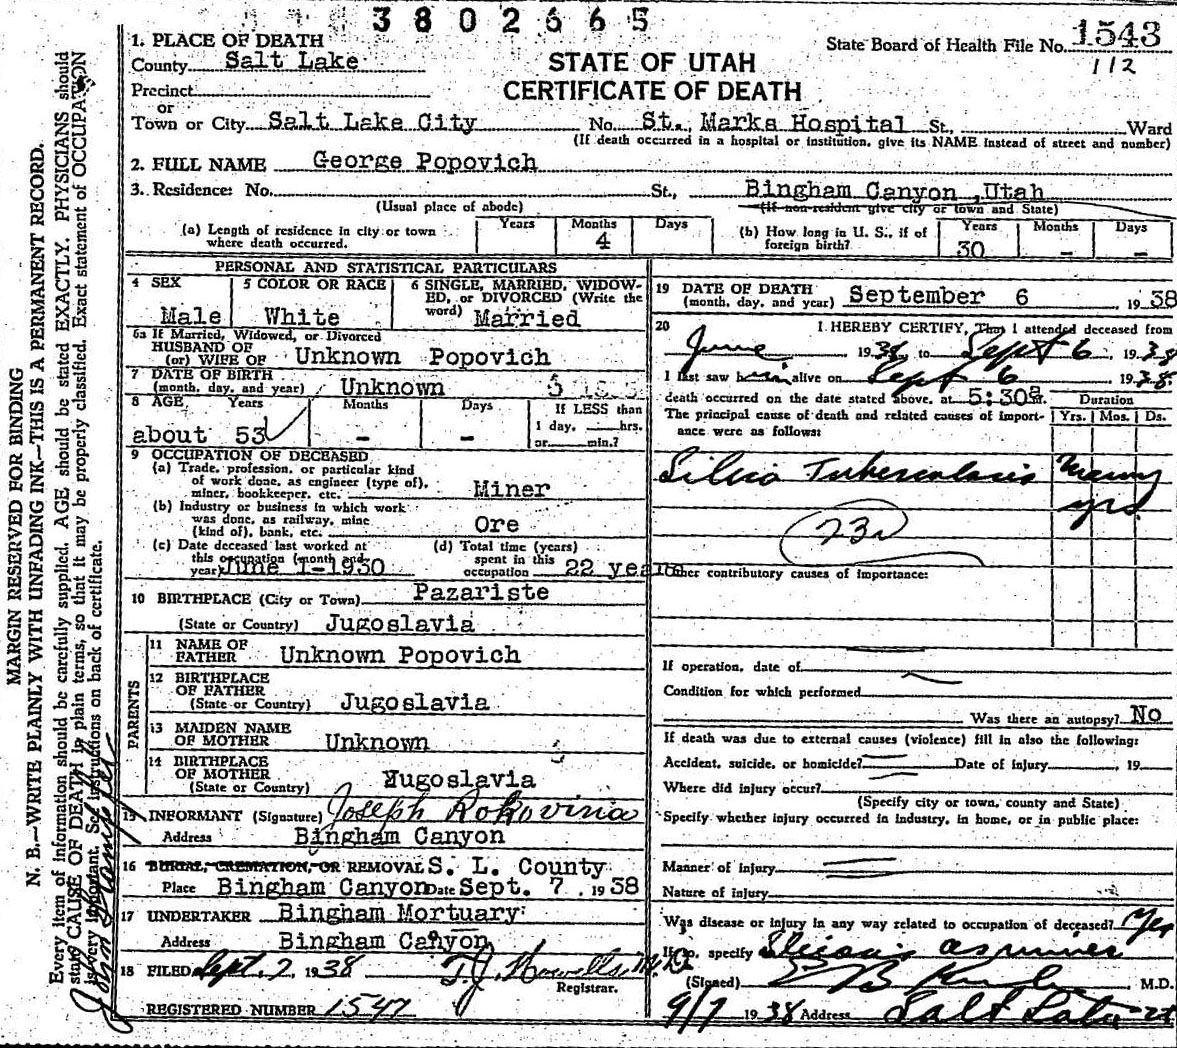 3802665
1. PLACE OF DEATH
County Salt Lake
Precinct
or
Town or City Salt Lake City No. St. Marks Hospital St., Ward
(If death occurred in a hospital or institution, give its NAME instead of street and number)
STATE OF UTAH
CERTIFICATE OF DEATH
State Board of Health File No. 1543
112
2. FULL NAME George Popovich
3. Residence: No. St., Bingham Canyon ,Utah
(Usual place of abode) (If non-resident give city or town and State)
(a) Length of residence in city or town where death occurred. Years Months 4 Days
(b) How long in U. S., if of foreign birth? Years 30 Months - Days -
PERSONAL AND STATISTICAL PARTICULARS
4 SEX Male
5 COLOR OR RACE White
6 SINGLE, MARRIED, WIDOWED, or DIVORCED (Write the word) Married
6a If Married, Widowed, or Divorced
HUSBAND OF
(or) WIFE OF Unknown Popovich
7 DATE OF BIRTH
(month, day, and year) Unknown
8 AGE Years about 53 Months - Days - If LESS than 1 day, hrs. or min.?
9 OCCUPATION OF DECEASED
(a) Trade, profession, or particular kind
of work done, as engineer (type of),
miner, bookkeeper, etc. Miner
(b) Industry or business in which work
was done, as railway, mine
(kind of), bank, etc. Ore
(c) Date deceased last worked at
this occupation (month and
year) June 1-1930
(d) Total time (years)
spent in this
occupation 22 years
10 BIRTHPLACE (City or Town) Pazariste
(State or Country) Jugoslavia
PARENTS
11 NAME OF
FATHER Unknown Popovich
12 BIRTHPLACE
OF FATHER
(State or Country) Jugoslavia
13 MAIDEN NAME
OF MOTHER Unknown
14 BIRTHPLACE
OF MOTHER
(State or Country) Jugoslavia
15 INFORMANT (Signature) Joseph Rokovina
Address Bingham Canyon
16 BURIAL, CREMATION, OR REMOVAL S. L. County
Place Bingham Canyon Date Sept. 7 1938
17 UNDERTAKER Bingham Mortuary
Address Bingham Canyon
18 FILED Sept. 7 1938 T. J. Howells, M. D.
Registrar.
REGISTERED NUMBER 1547
19 DATE OF DEATH
(month, day, and year) September 6 1938
20 I HEREBY CERTIFY, That I attended deceased from
June 1938, to Sept 6, 1938
I last saw him alive on Sept 6 1938.
death occurred on the date stated above, at 5:30a m.
Duration
The principal cause of death and related causes of importance were as follows: Yrs. Mos. Ds.
Silico Tuberculosis Many
yrs.
23a
Other contributory causes of importance:
If operation, date of
Condition for which performed
Was there an autopsy? No
If death was due to external causes (violence) fill in also the following:
Accident, suicide, or homicide? Date of injury , 19
Where did injury occur?
(Specify city or town, county and State)
Specify whether injury occurred in industry, in home, or in public place:
Manner of injury
Nature of injury
Was disease or injury in any way related to occupation of deceased? Yes
If so, specify Silicosis as miner
(Signed) M.D.
9/7 1938 Address Salt Lake
MARGIN RESERVED FOR BINDING
N. B.—WRITE PLAINLY WITH UNFADING INK—THIS IS A PERMANENT RECORD.
Every item of information should be carefully supplied. AGE should be stated EXACTLY. PHYSICIANS should
state CAUSE OF DEATH in plain terms, so that it may be properly classified. Exact statement of OCCUPATION
is very important. See instructions on back of certificate.